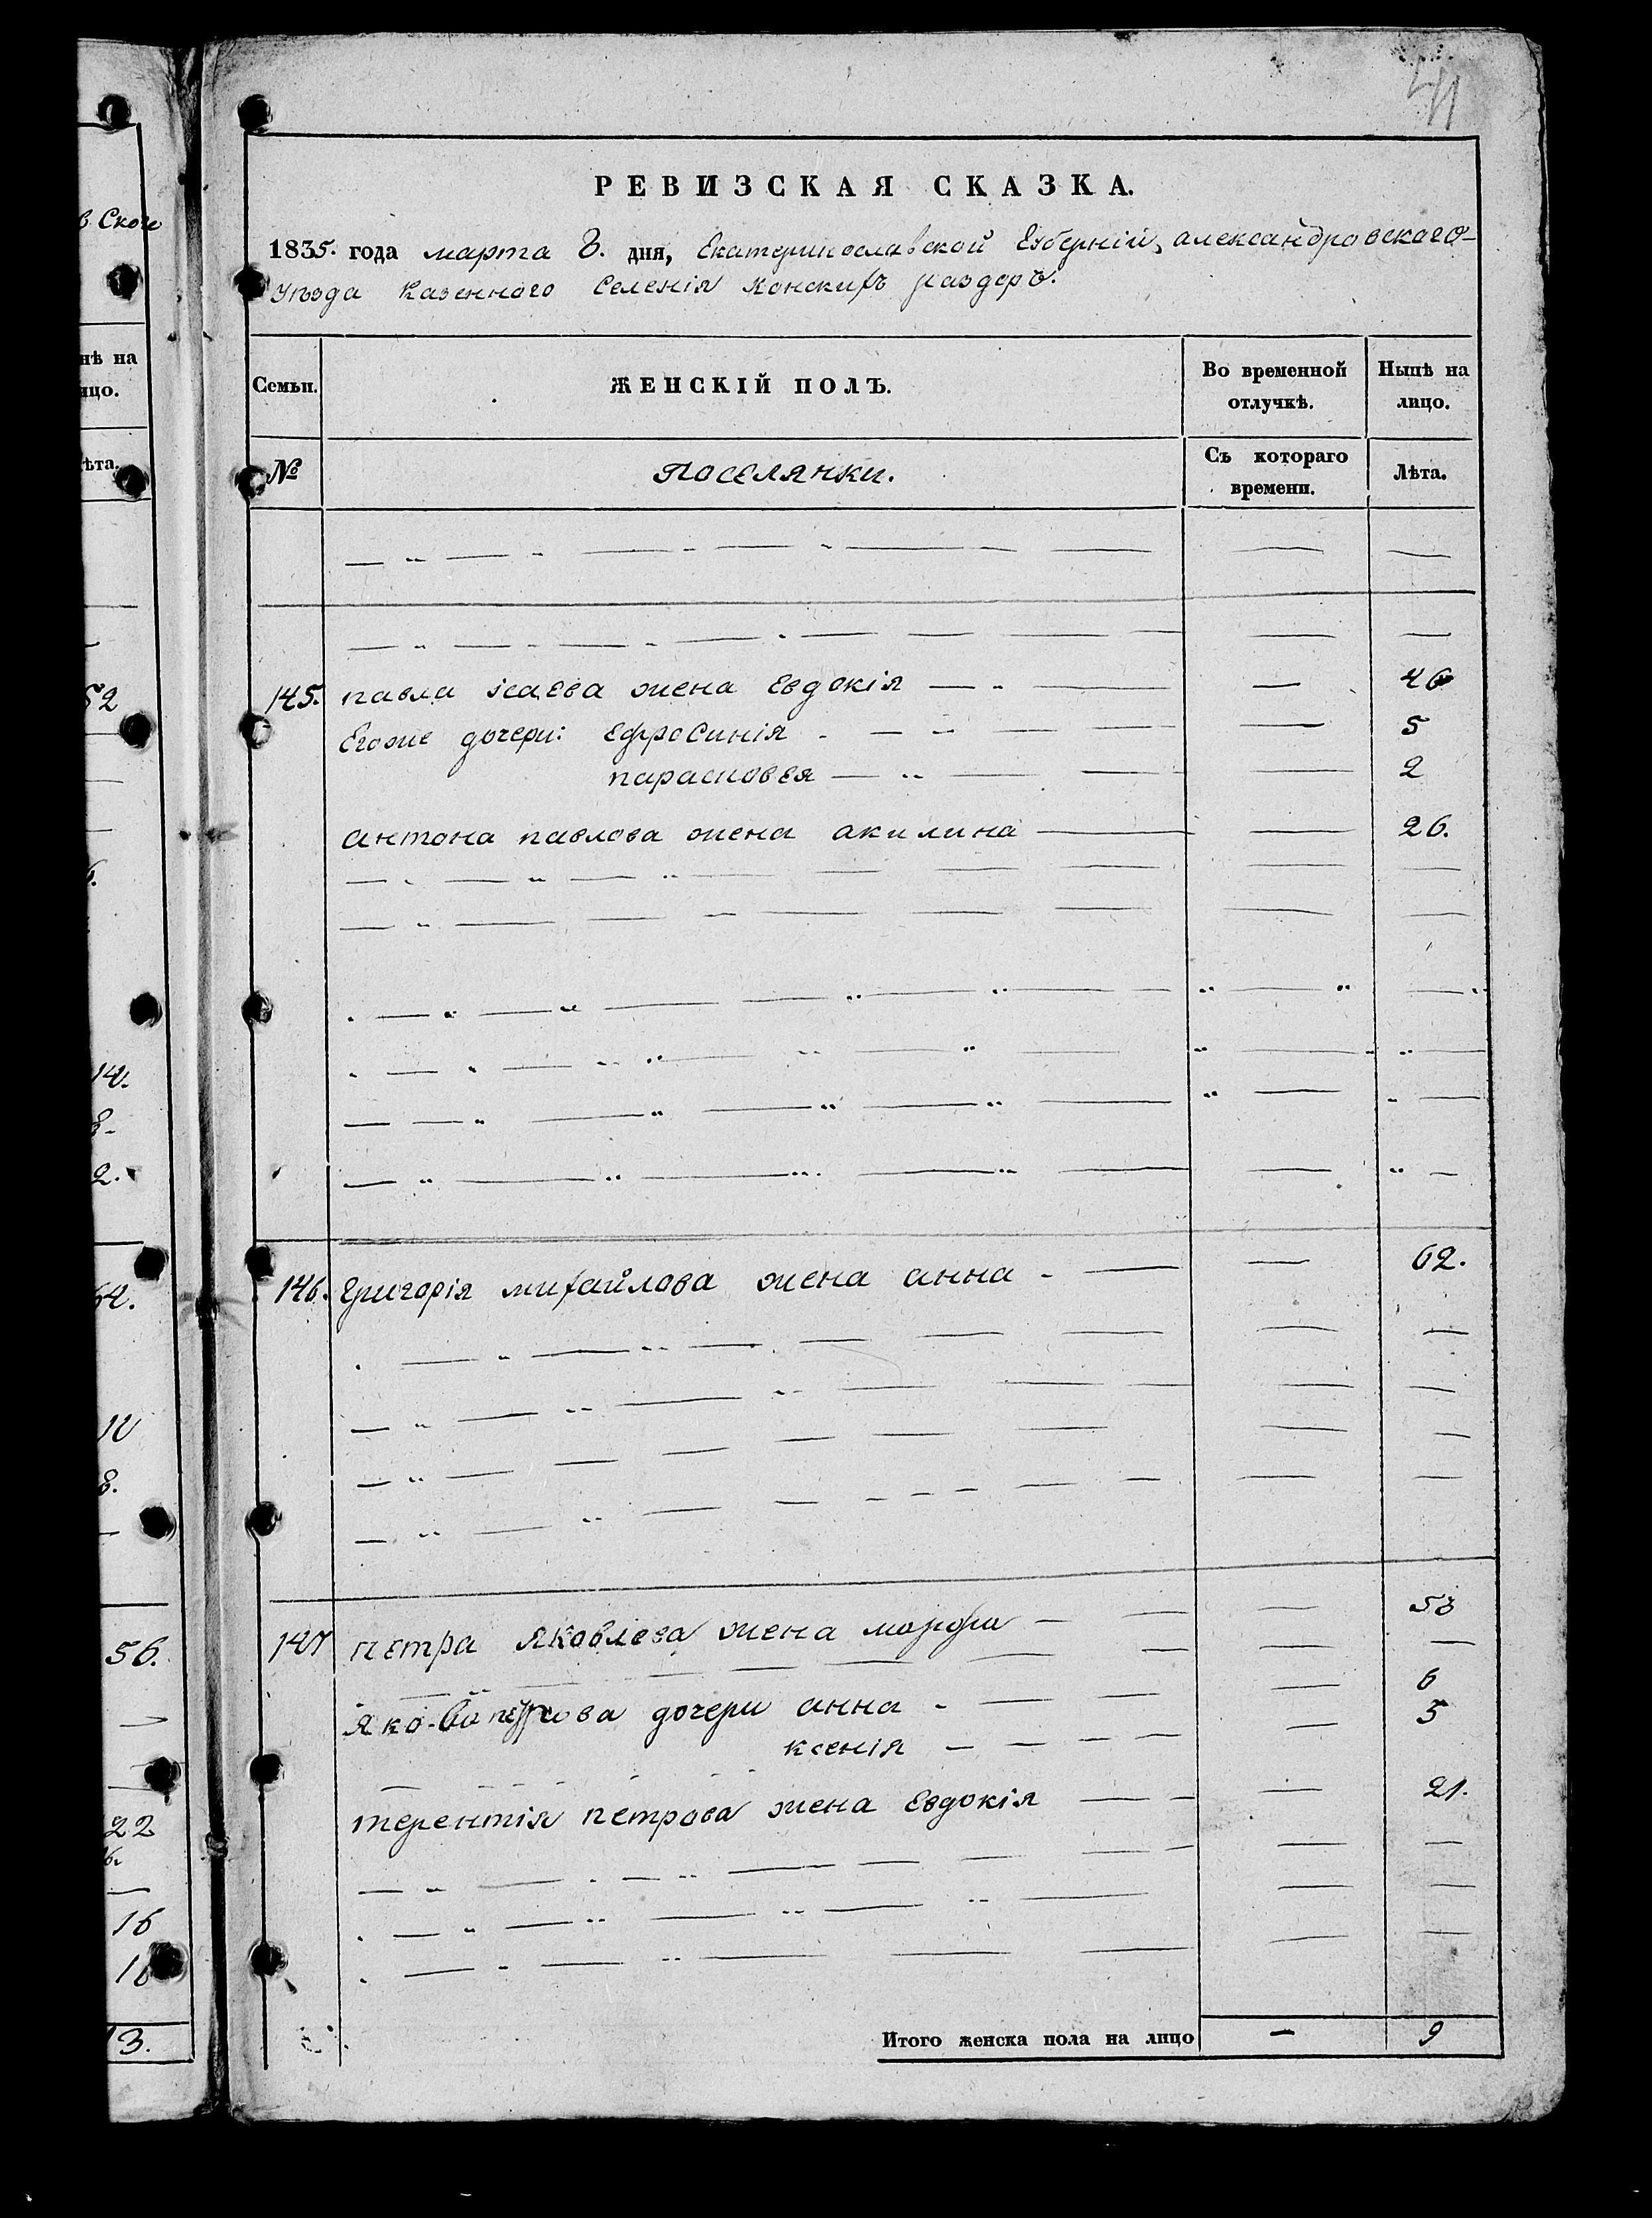 41
РЕВИЗСКАЯ СКАЗКА.
1835. года марта 8. дня, Екатеринославской Губерніи, александровскаго
Уѣзда Казенного Селенія Конскихъ раздоръ.
Семьи. ЖЕНСКІЙ ПОЛЪ. Во временной отлучкѣ. Нынѣ на лицо.
№ Поселянки. Съ котораго времени. Лѣта.
145. павла исаева жена Евдокія — — 46
Егоже дочери: Ефросинія — — 5
парасковея — — 2
антона павлова жена акилина — — 26.
146. Григорія михайлова жена анна — — 62.
147 петра Яковлева жена марфа — — 58
Якова петрова дочери анна — — 6
ксенія — — 5
терентія петрова жена Евдокія — — 21.
Итого женска пола на лицо — 9
нѣ на
ицо.
ѣта.
52
14.
8.
2.
64.
10
8.
56.
22
16
13.